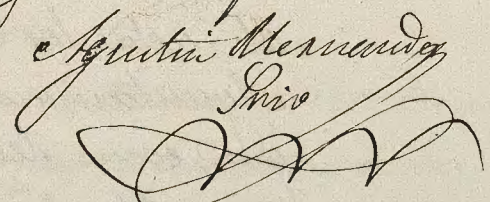 Agustin Hernandez
Srio